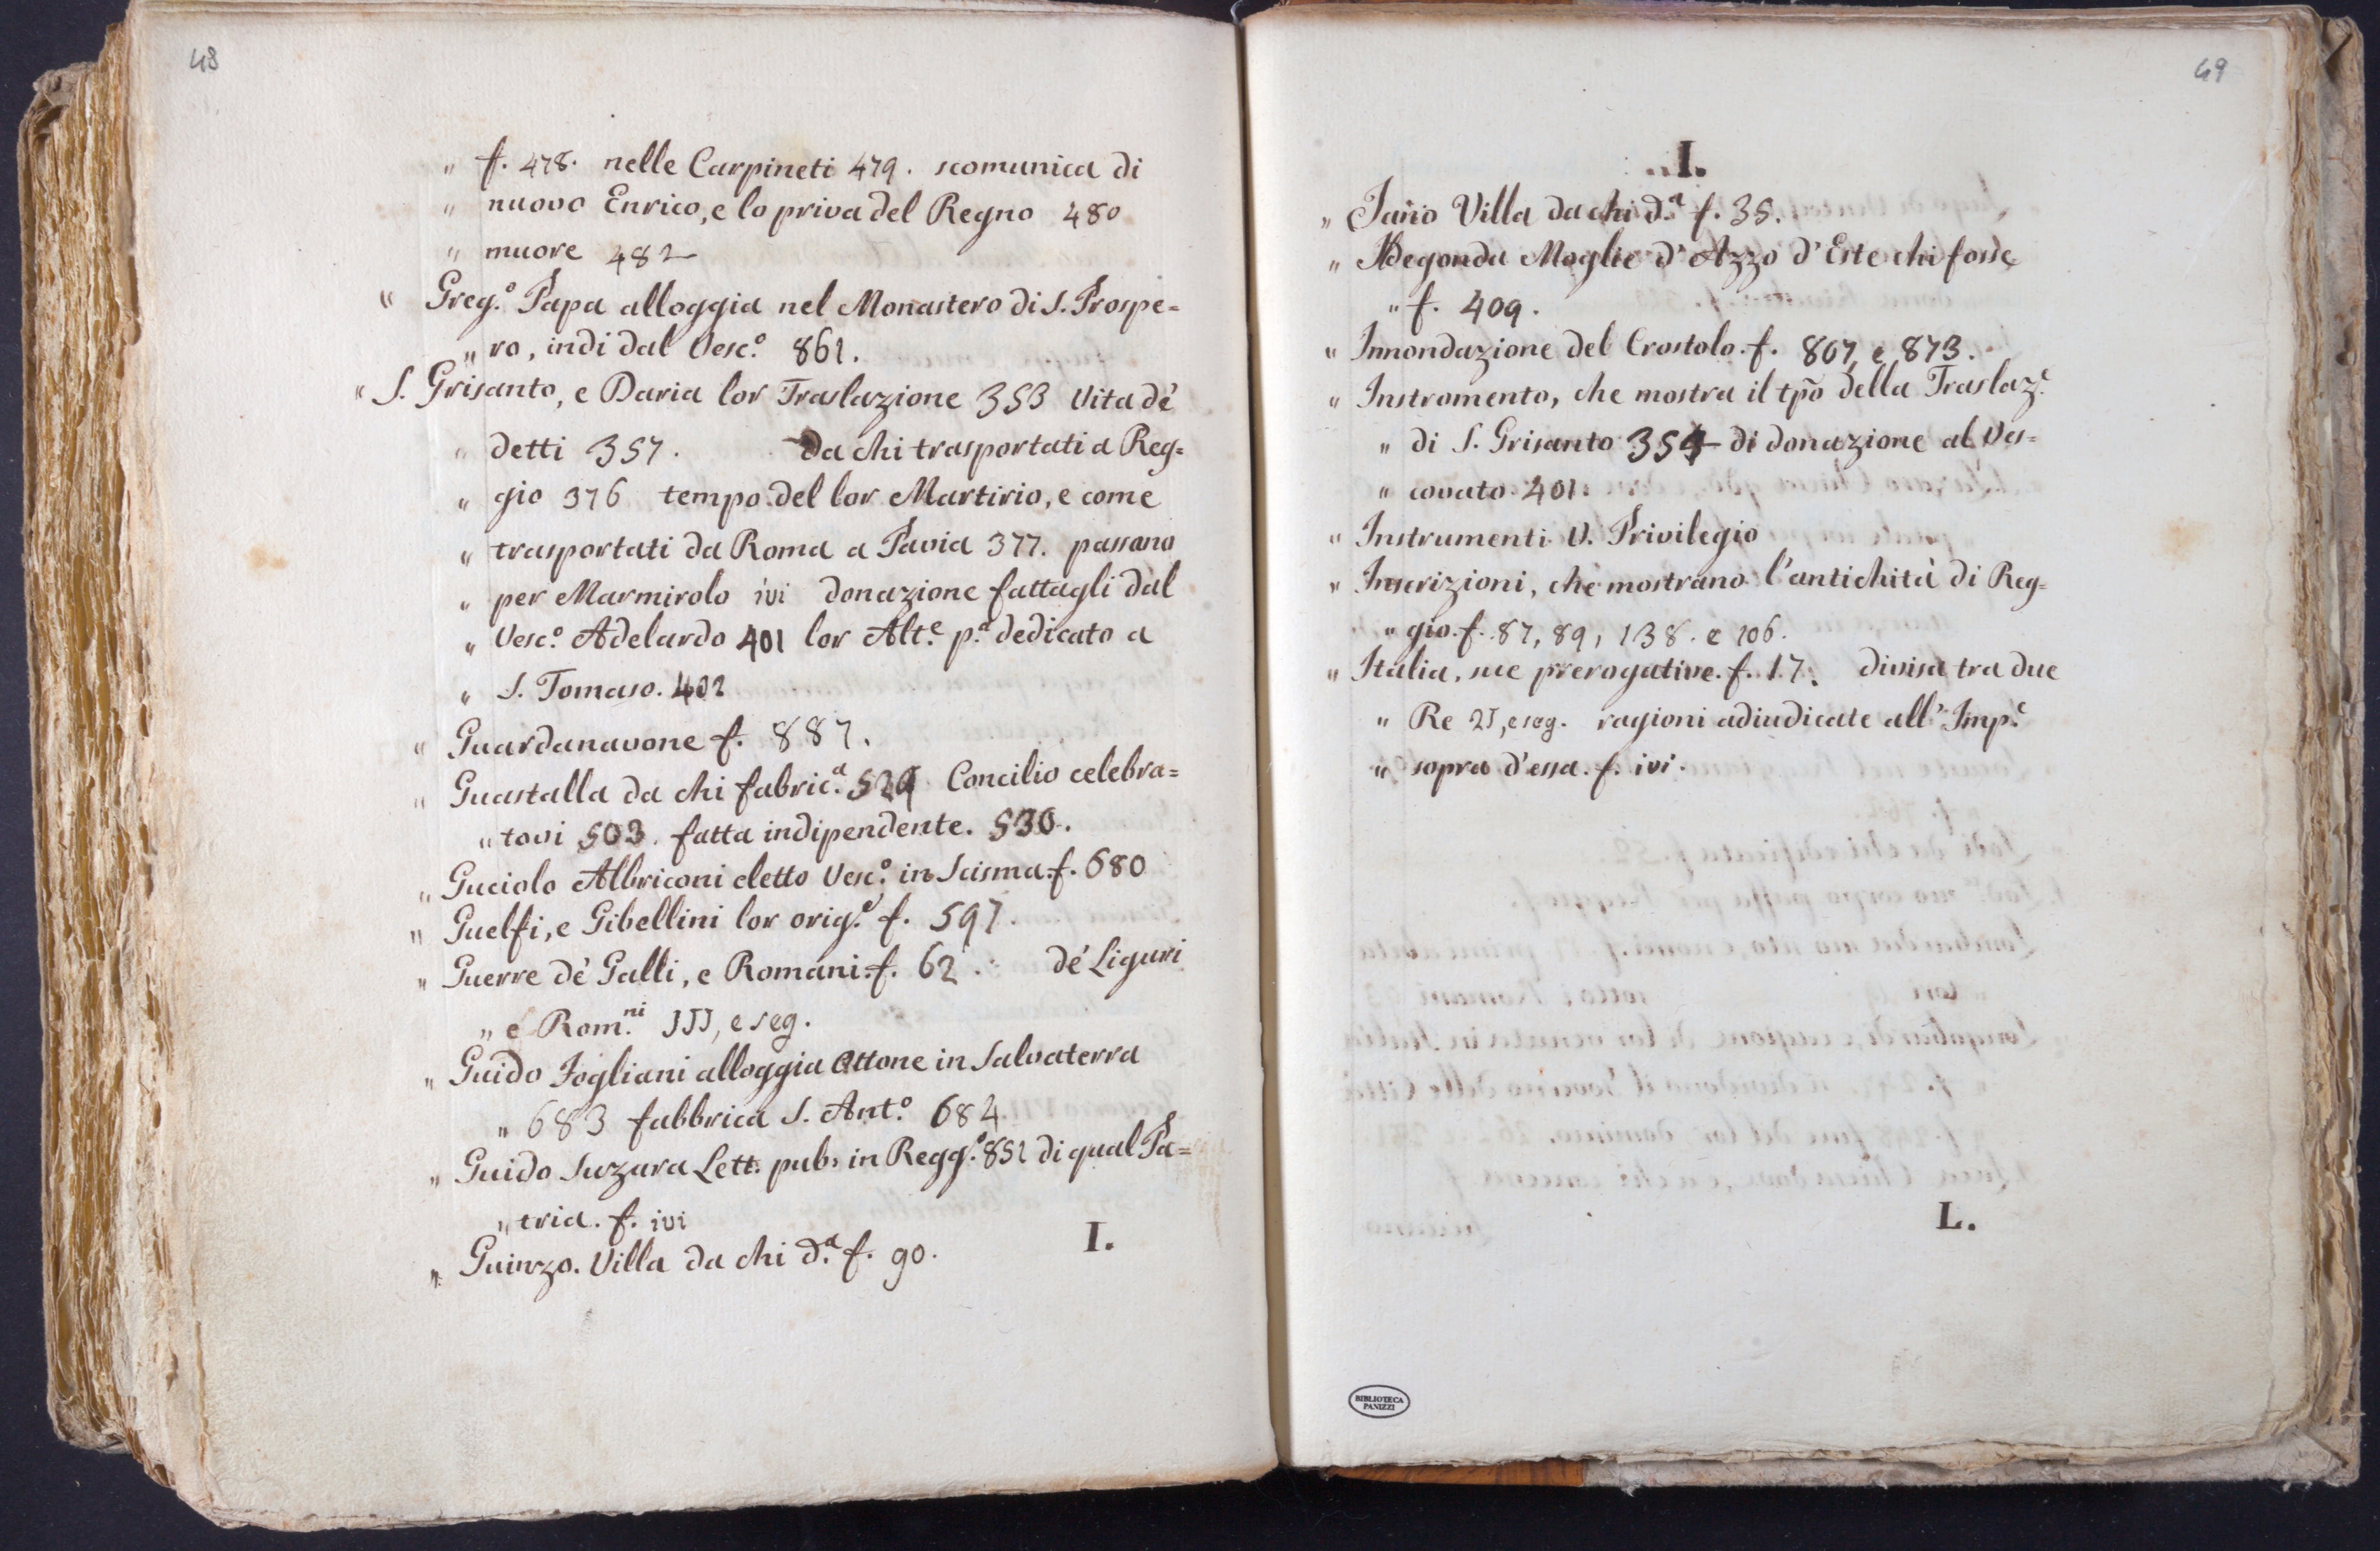 48
„ f. 478. nelle Carpineti 479. scomunica di
„ nuovo Enrico, e lo priva del Regno 480
„ muore 482
„ Greg.º Papa alloggia nel Monastero di S. Prospe=
„ ro, indi dal Vesc.º 861.
„ S. Grisanto, e Daria lor Traslazione 353 Vita dè
„ detti 357. da chi trasportati a Reg=
„ gio 376 tempo del lor Martirio, e come
„ trasportati da Roma a Pavia 377. passano
„ per Marmirolo ivi donazione fattagli dal
„ Vesc.º Adelardo 401 lor Alt.e p.a dedicato a
„ S. Tomaso. 402
„ Guardanavone f. 887.
„ Guastalla da chi fabric.a Concilio celebra=
„ tovi 503. fatta indipendente. 530.
„ Guciolo Albriconi eletto Vesc.º in Scisma. f. 680
„ Guelfi, e Gibellini lor orig.e f. 597.
„ Guerre dè Galli, e Romani. f. 62. dè Liguri
„ e Rom.ni 111, e seg.
„ Guido Fogliani alloggia Ottone in Salvaterra
„ 683 fabbrica S. Ant.º 684
„ Guido Suzara Lett. pub: in Regg.º 851 di qual Pa=
„ tria. f. ivi
„ Guinzo. Villa da chi d.a f. 90.
I.
49
I.
„ Jano Villa da chi d.a f. 35.
„ Ildegonda Moglie d'Azzo d'Este chi fosse
„ f. 409.
„ Innondazione del Crostolo. f. 867, e 873.
„ Instromento, che mostra il tpo della Traslaz.e
„ di S. Grisanto 354 di donazione al Ves=
„ covato 401.
„ Instrumenti V. Privilegio
„ Inscrizioni, che mostrano l'antichità di Reg=
„ gio. f. 87, 89, 138. e 106.
„ Italia, sue prerogative. f. 17. divisa tra due
„ Re 21, e seg. ragioni adiudicate all' Imp.e
„ sopra d'essa. f. ivi.
L.
BIBLIOTECA
PANIZZI